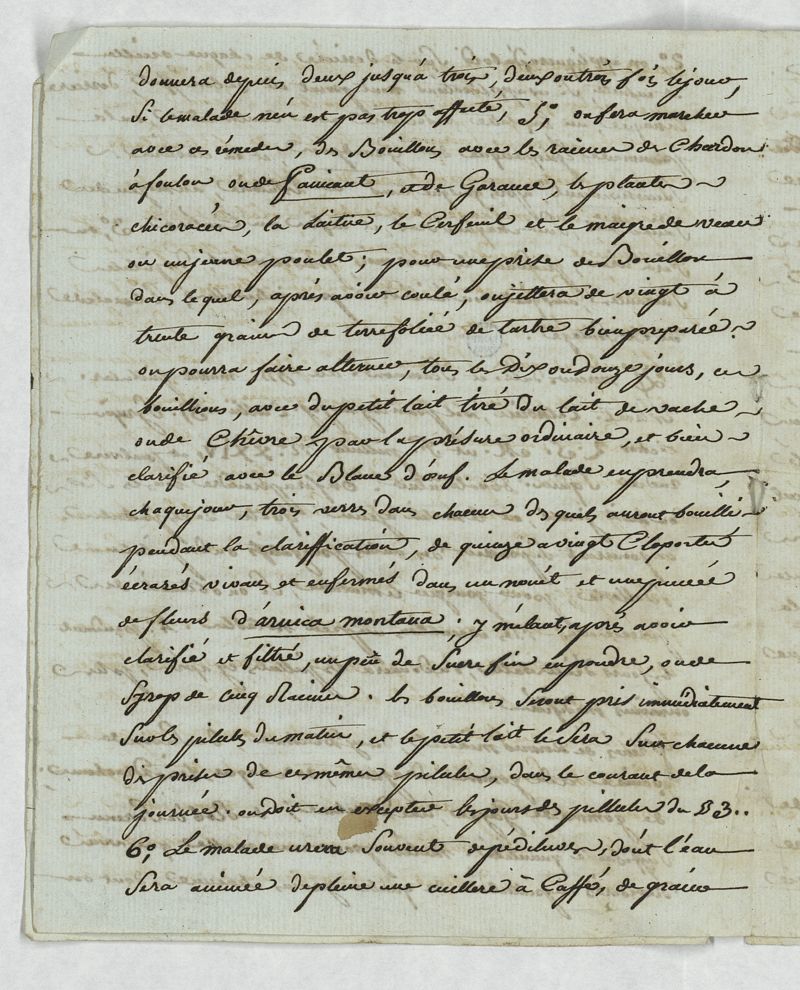 donnera depuis deux jusqu'à trois, deux ou trois fois le jour,
Si le malade n'en est pas trop affecté, 5°, on fera marcher
avec ces rémedes, des Bouillons avec les racines de Chardon
à foulon ou de Panicaut, et de Garance, les plantes
chicoracées, la Laitue, le Cerfeuil et le maigre de veau
ou un jeune poulet; pour une prise de Bouillon
dans lequel, aprés avoir coulé, on jettera de vingt à
trente grains de terre foliée de tartre bien preparée.
on pourra faire alterner, tous les Dix ou douze jours, ces
bouillions, avec du petit lait tiré du lait de vache
ou de Chêvre par la présure ordinaire, et bien
clarifié avec le Blanc d'œuf. Le malade en prendra,
chaque jour, trois verres dans chacun des quels auront bouilli
pendant la clariffication, de quinze a vingt Cloportes
écrasés vivans et enfermés dans un nouét et une pincée
de fleurs d'árnica montana. y mêlant, aprés avoir
clarifié et filtré, un peu de Sucre fin en poudre, ou de
Syrop de cinq Racines. les bouillons Seront pris immédiatement
Sur les pilules du matin, et le petit lait le Sera Sur chacune
des prises de ces mêmes pilules, dans le courant de la
journée. on doit en excepter les jours des pillules du B 3..
6°, Le malade usera Souvent de pédiluves, dont l'eau
Sera animée de pleine une cuilleré à Caffés, de graine